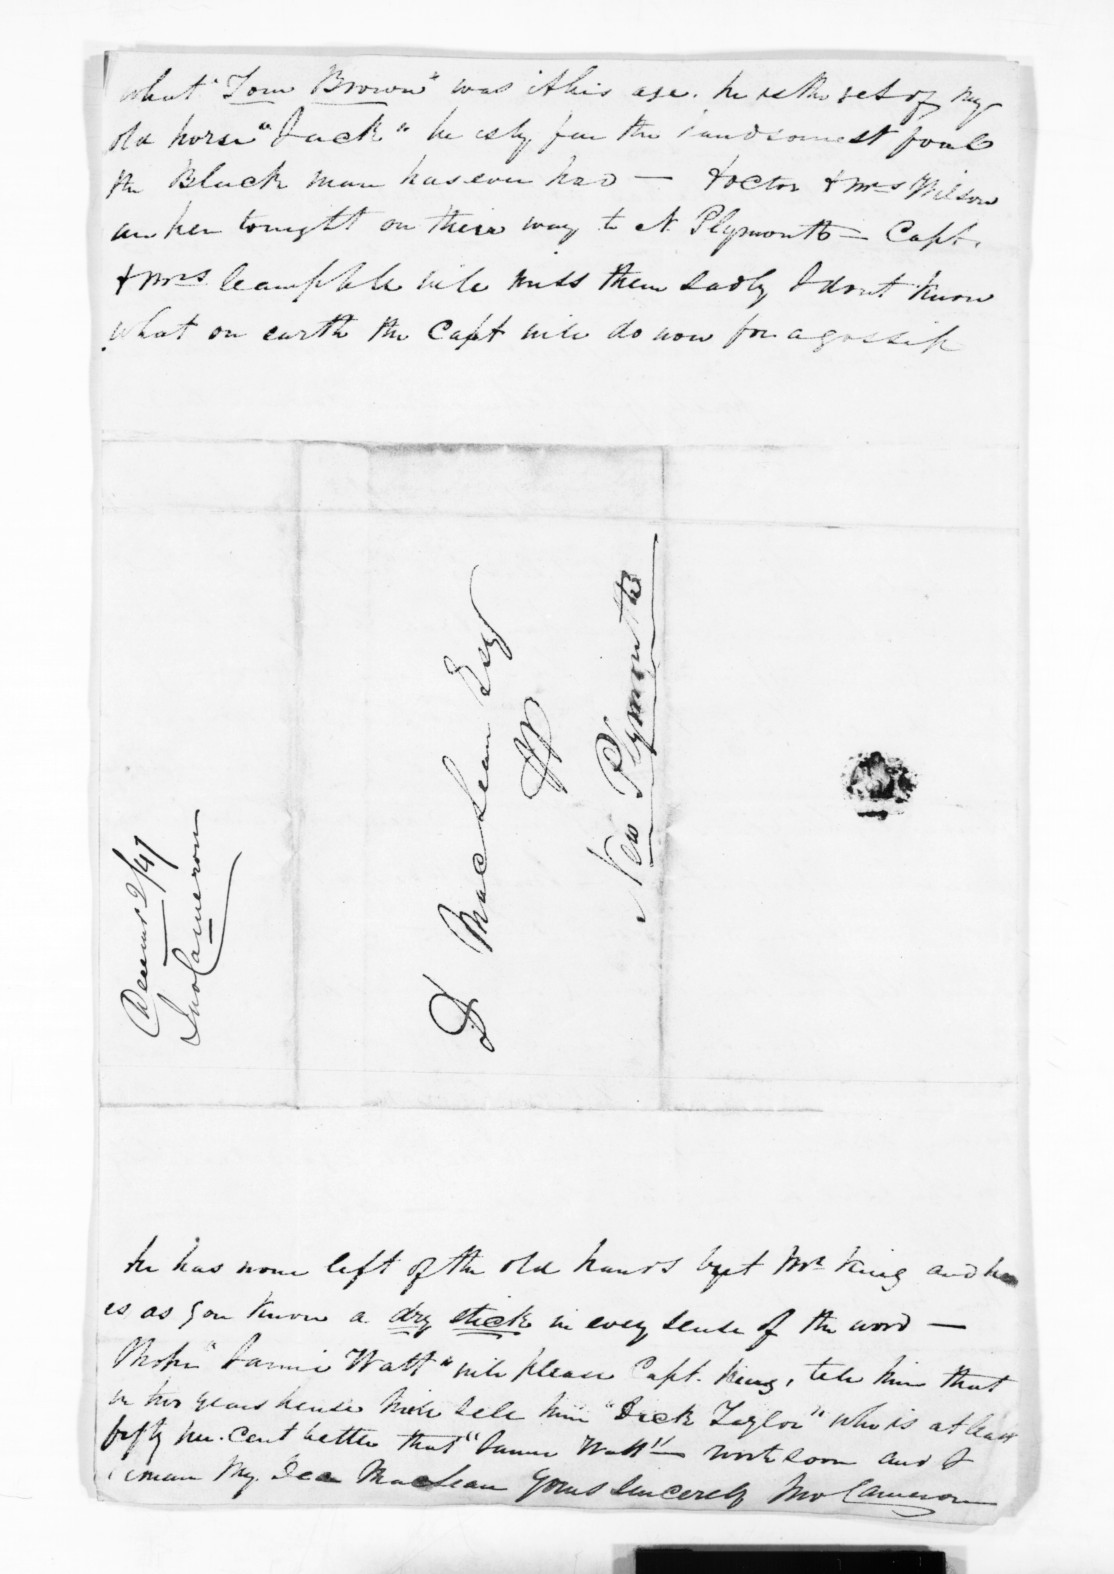 what "Tom Brown" was at his age. he is the get of my
old horse "Jack" he is by far the handsomest foal
the Black mare has ever had — Doctor & Mrs Wilson
are here tonight on their way to N. Plymouth — Capt.
& Mrs Campbell will miss them sadly I dont know
what on earth the Capt will do now for a gossip
D MacLean Esqr
New Plymouth
December 2/47
Jno Cameron
he has none left of the old hands but Mr. King and he
is as you know a dry stick in every sense of the word —
I hope "Jamie Watt" will please Capt. King, tell him that
in two years hence I will sell him "Dick Taylor" who is at least
fifty per. cent better that "Jamie Watt" — write soon and I
remain My Dear MacLean Yours Sincerely Jno Cameron